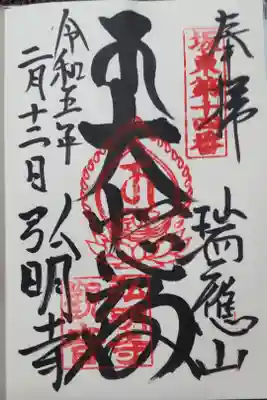 奉拝
坂東第十四番
瑞應山
大悲殿
令和五年
二月十二日
弘明寺